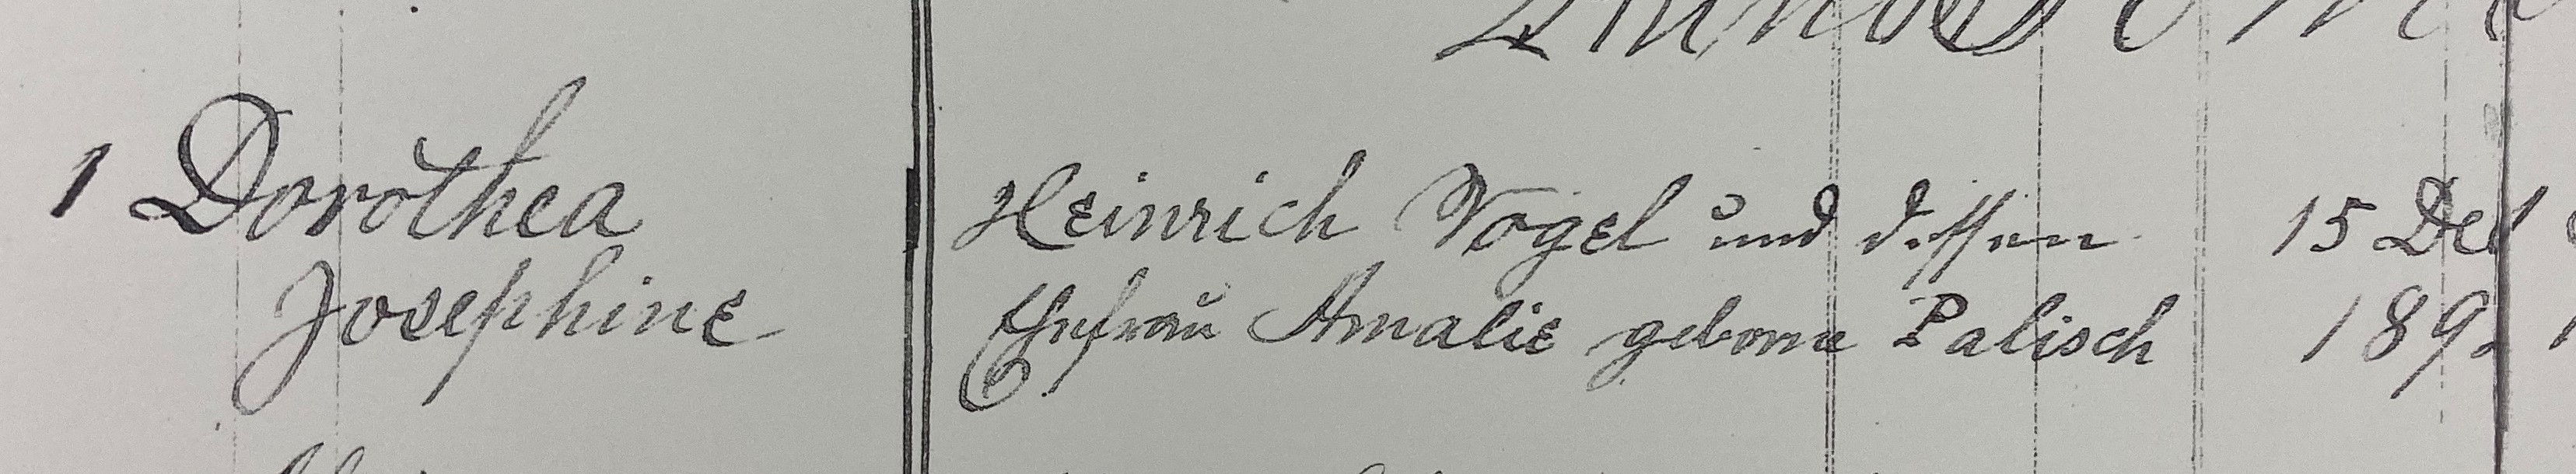 1 Dorothea Heinrich Vogel und dessen 15 Dec
Josephine Ehefrau Amalie geborne Palisch 189